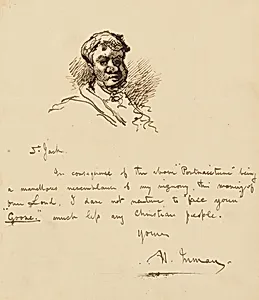 Dr Jack
In consequence of the above "Portraiture" being
a marvellous resemblance of my            this morning of
our Lord. I dare not venture to face your
"Goose." much less any Christian people.
Yours
H. Inman